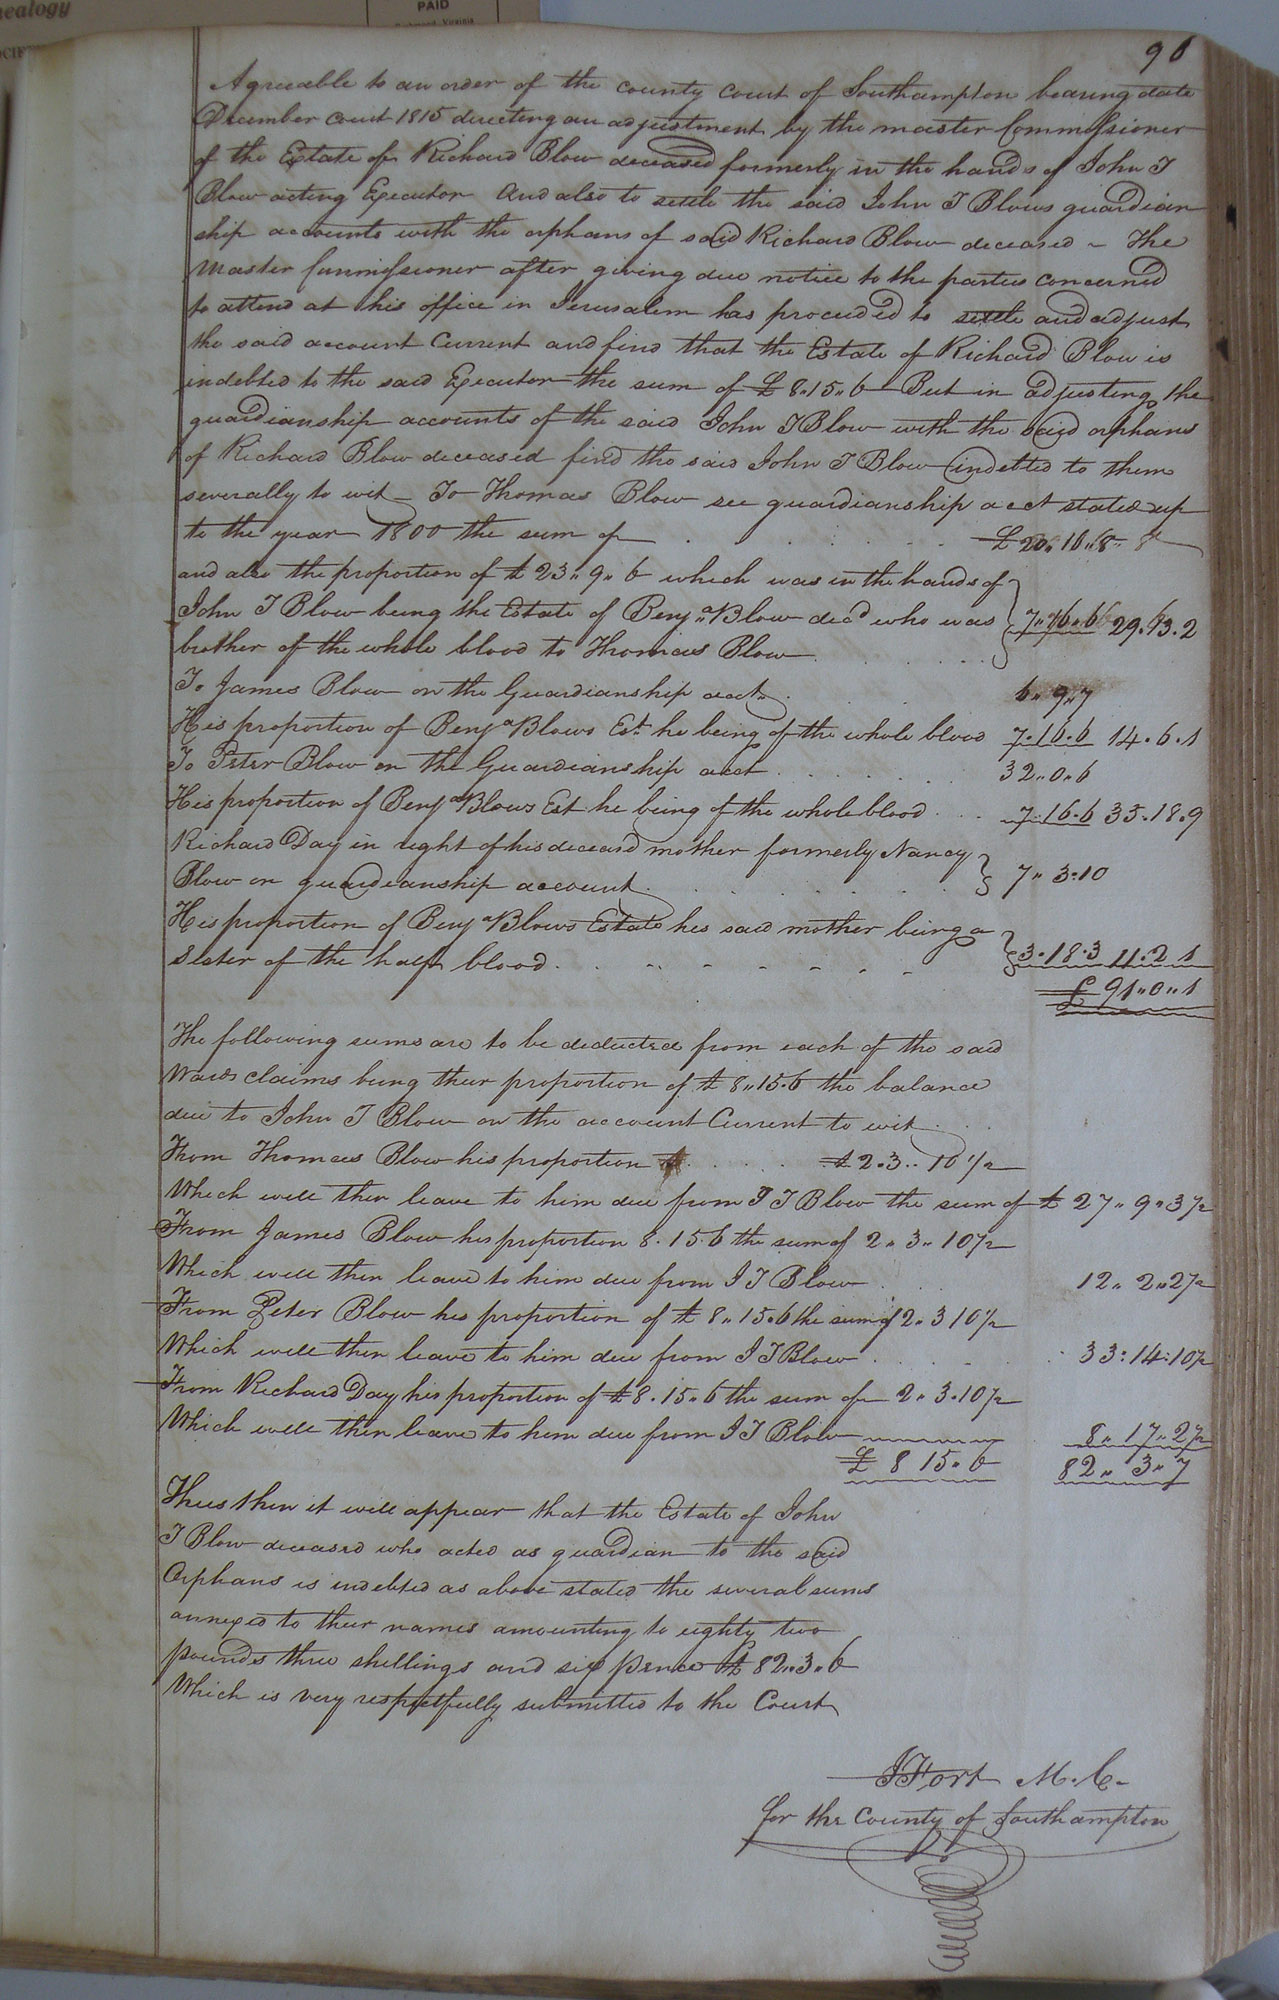 nealogy
PAID
Richmond, Virginia
90
Agreeable to an order of the county court of Southampton bearing date
December court 1815 directing an adjustment by the master Commissioner
of the Estate of Richard Blow deceased formerly in the hands of John T
Blow acting Executor And also to settle the said John T Blows guardian
ship accounts with the orphans of said Richard Blow deceased - The
Master Commissioner after giving due notice to the parties concerned
to attend at his office in Jerusalem has proceeded to settle and adjust
the said account Current and find that the Estate of Richard Blow is
indebted to the said Executor the sum of £ 8.15.6 But in adjusting the
guardianship accounts of the said John T Blow with the said orphans
of Richard Blow deceased find the said John T Blow indebted to them
severally to wit - To Thomas Blow see guardianship acct stated up
to the year 1800 the sum of £ 20.16.8
and also the proportion of £ 23.9.6 which was in the hands of
John T Blow being the Estate of Benja Blow decd who was 7.16.6 29.13.2
brother of the whole blood to Thomas Blow
To James Blow on the Guardianship acct. 6.9.7
His proportion of Benja Blows Est. he being of the whole blood 7.16.6 14.6.1
To Peter Blow on the Guardianship acct 32.0.6
His proportion of Benja Blows Est he being of the whole blood 7.16.6 35.18.9
Richard Day in right of his deceased mother formerly Nancy
Blow on guardianship account 7.3.10
His proportion of Benja Blows Estate his said mother being a
Sister of the half blood 3.18.3 11.2 1
£ 91.0.1
The following sums are to be deducted from each of the said
Wards claims being their proportion of £ 8.15.6 the balance
due to John T Blow on the account Current to wit
From Thomas Blow his proportion £ 2.3.10 1/2
Which will then leave to him due from J T Blow the sum of £ 27.9.3 1/2
From James Blow his proportion 8.15.6 the sum of 2.3.10 1/2
Which will then leave to him due from J T Blow 12.2.2 1/2
From Peter Blow his proportion of £ 8.15.6 the sum of 2.3 10 1/2
Which will then leave to him due from J T Blow 33.14.10 1/2
From Richard Day his proportion of £ 8.15.6 the sum of 2.3.10 1/2
Which will then leave to him due from J T Blow 8.17.2 1/2
£ 8 15.6 82.3.7
Thus then it will appear that the Estate of John
T Blow deceased who acted as guardian to the said
Orphans is indebted as above stated the several sums
annexed to their names amounting to eighty two
pounds three shellings and six pence £ 82.3.6
Which is very respectfully submitted to the Court
J Fort M.C.
for the County of Southampton